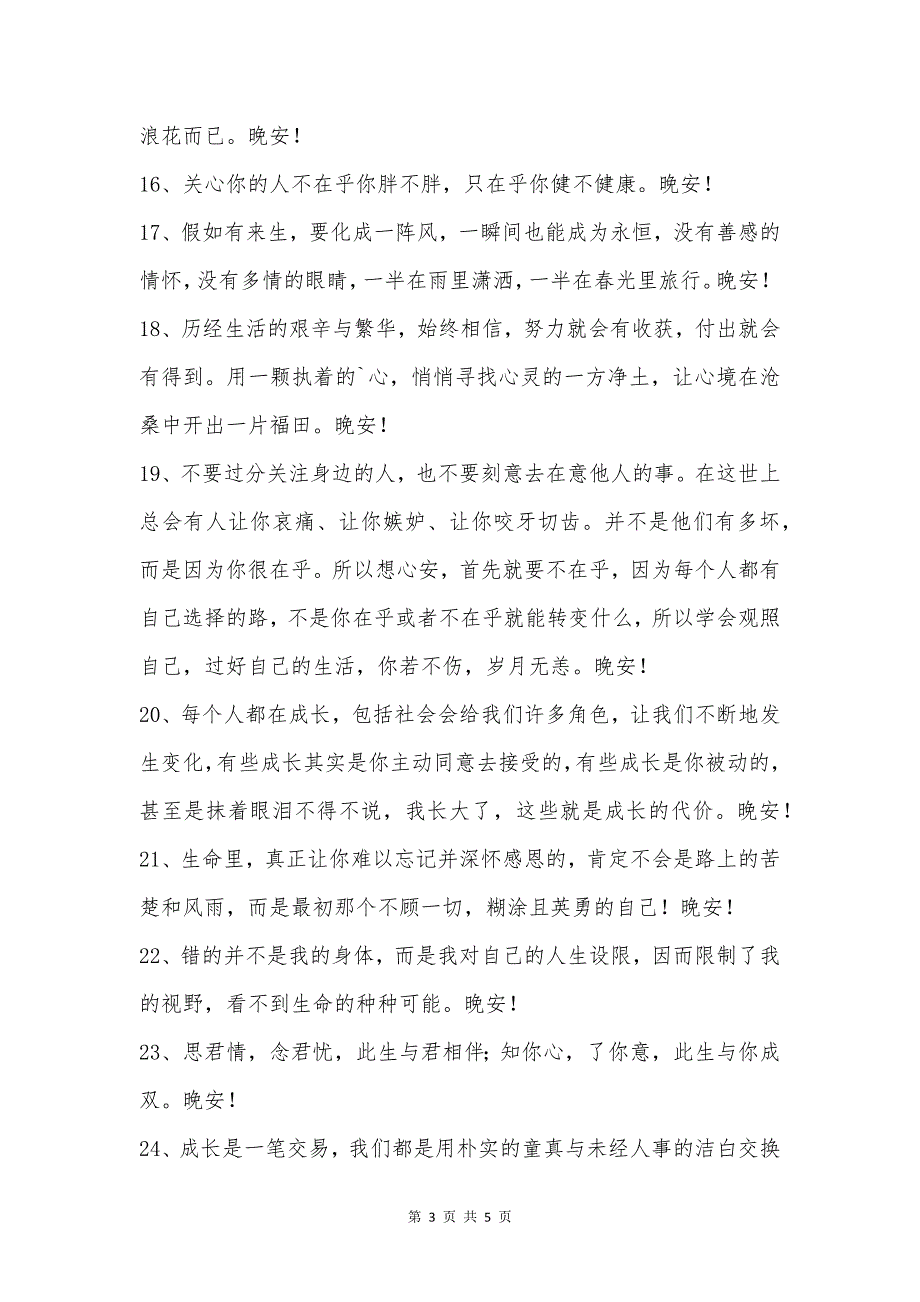 浪花而已。晚安！
16、关心你的人不在乎你胖不胖，只在乎你健不健康。晚安！
17、假如有来生，要化成一阵风，一瞬间也能成为永恒，没有善感的
情怀，没有多情的眼睛，一半在雨里潇洒，一半在春光里旅行。晚安！
18、历经生活的艰辛与繁华，始终相信，努力就会有收获，付出就会
有得到。用一颗执着的`心，悄悄寻找心灵的一方净土，让心境在沧
桑中开出一片福田。晚安！
19、不要过分关注身边的人，也不要刻意去在意他人的事。在这世上
总会有人让你哀痛、让你嫉妒、让你咬牙切齿。并不是他们有多坏，
而是因为你很在乎。所以想心安，首先就要不在乎，因为每个人都有
自己选择的路，不是你在乎或者不在乎就能转变什么，所以学会观照
自己，过好自己的生活，你若不伤，岁月无恙。晚安！
20、每个人都在成长，包括社会会给我们许多角色，让我们不断地发
生变化，有些成长其实是你主动同意去接受的，有些成长是你被动的，
甚至是抹着眼泪不得不说，我长大了，这些就是成长的代价。晚安！
21、生命里，真正让你难以忘记并深怀感恩的，肯定不会是路上的苦
楚和风雨，而是最初那个不顾一切，糊涂且英勇的自己！晚安！
22、错的并不是我的身体，而是我对自己的人生设限，因而限制了我
的视野，看不到生命的种种可能。晚安！
23、思君情，念君忧，此生与君相伴；知你心，了你意，此生与你成
双。晚安！
24、成长是一笔交易，我们都是用朴实的童真与未经人事的洁白交换
第 3 页 共 5 页